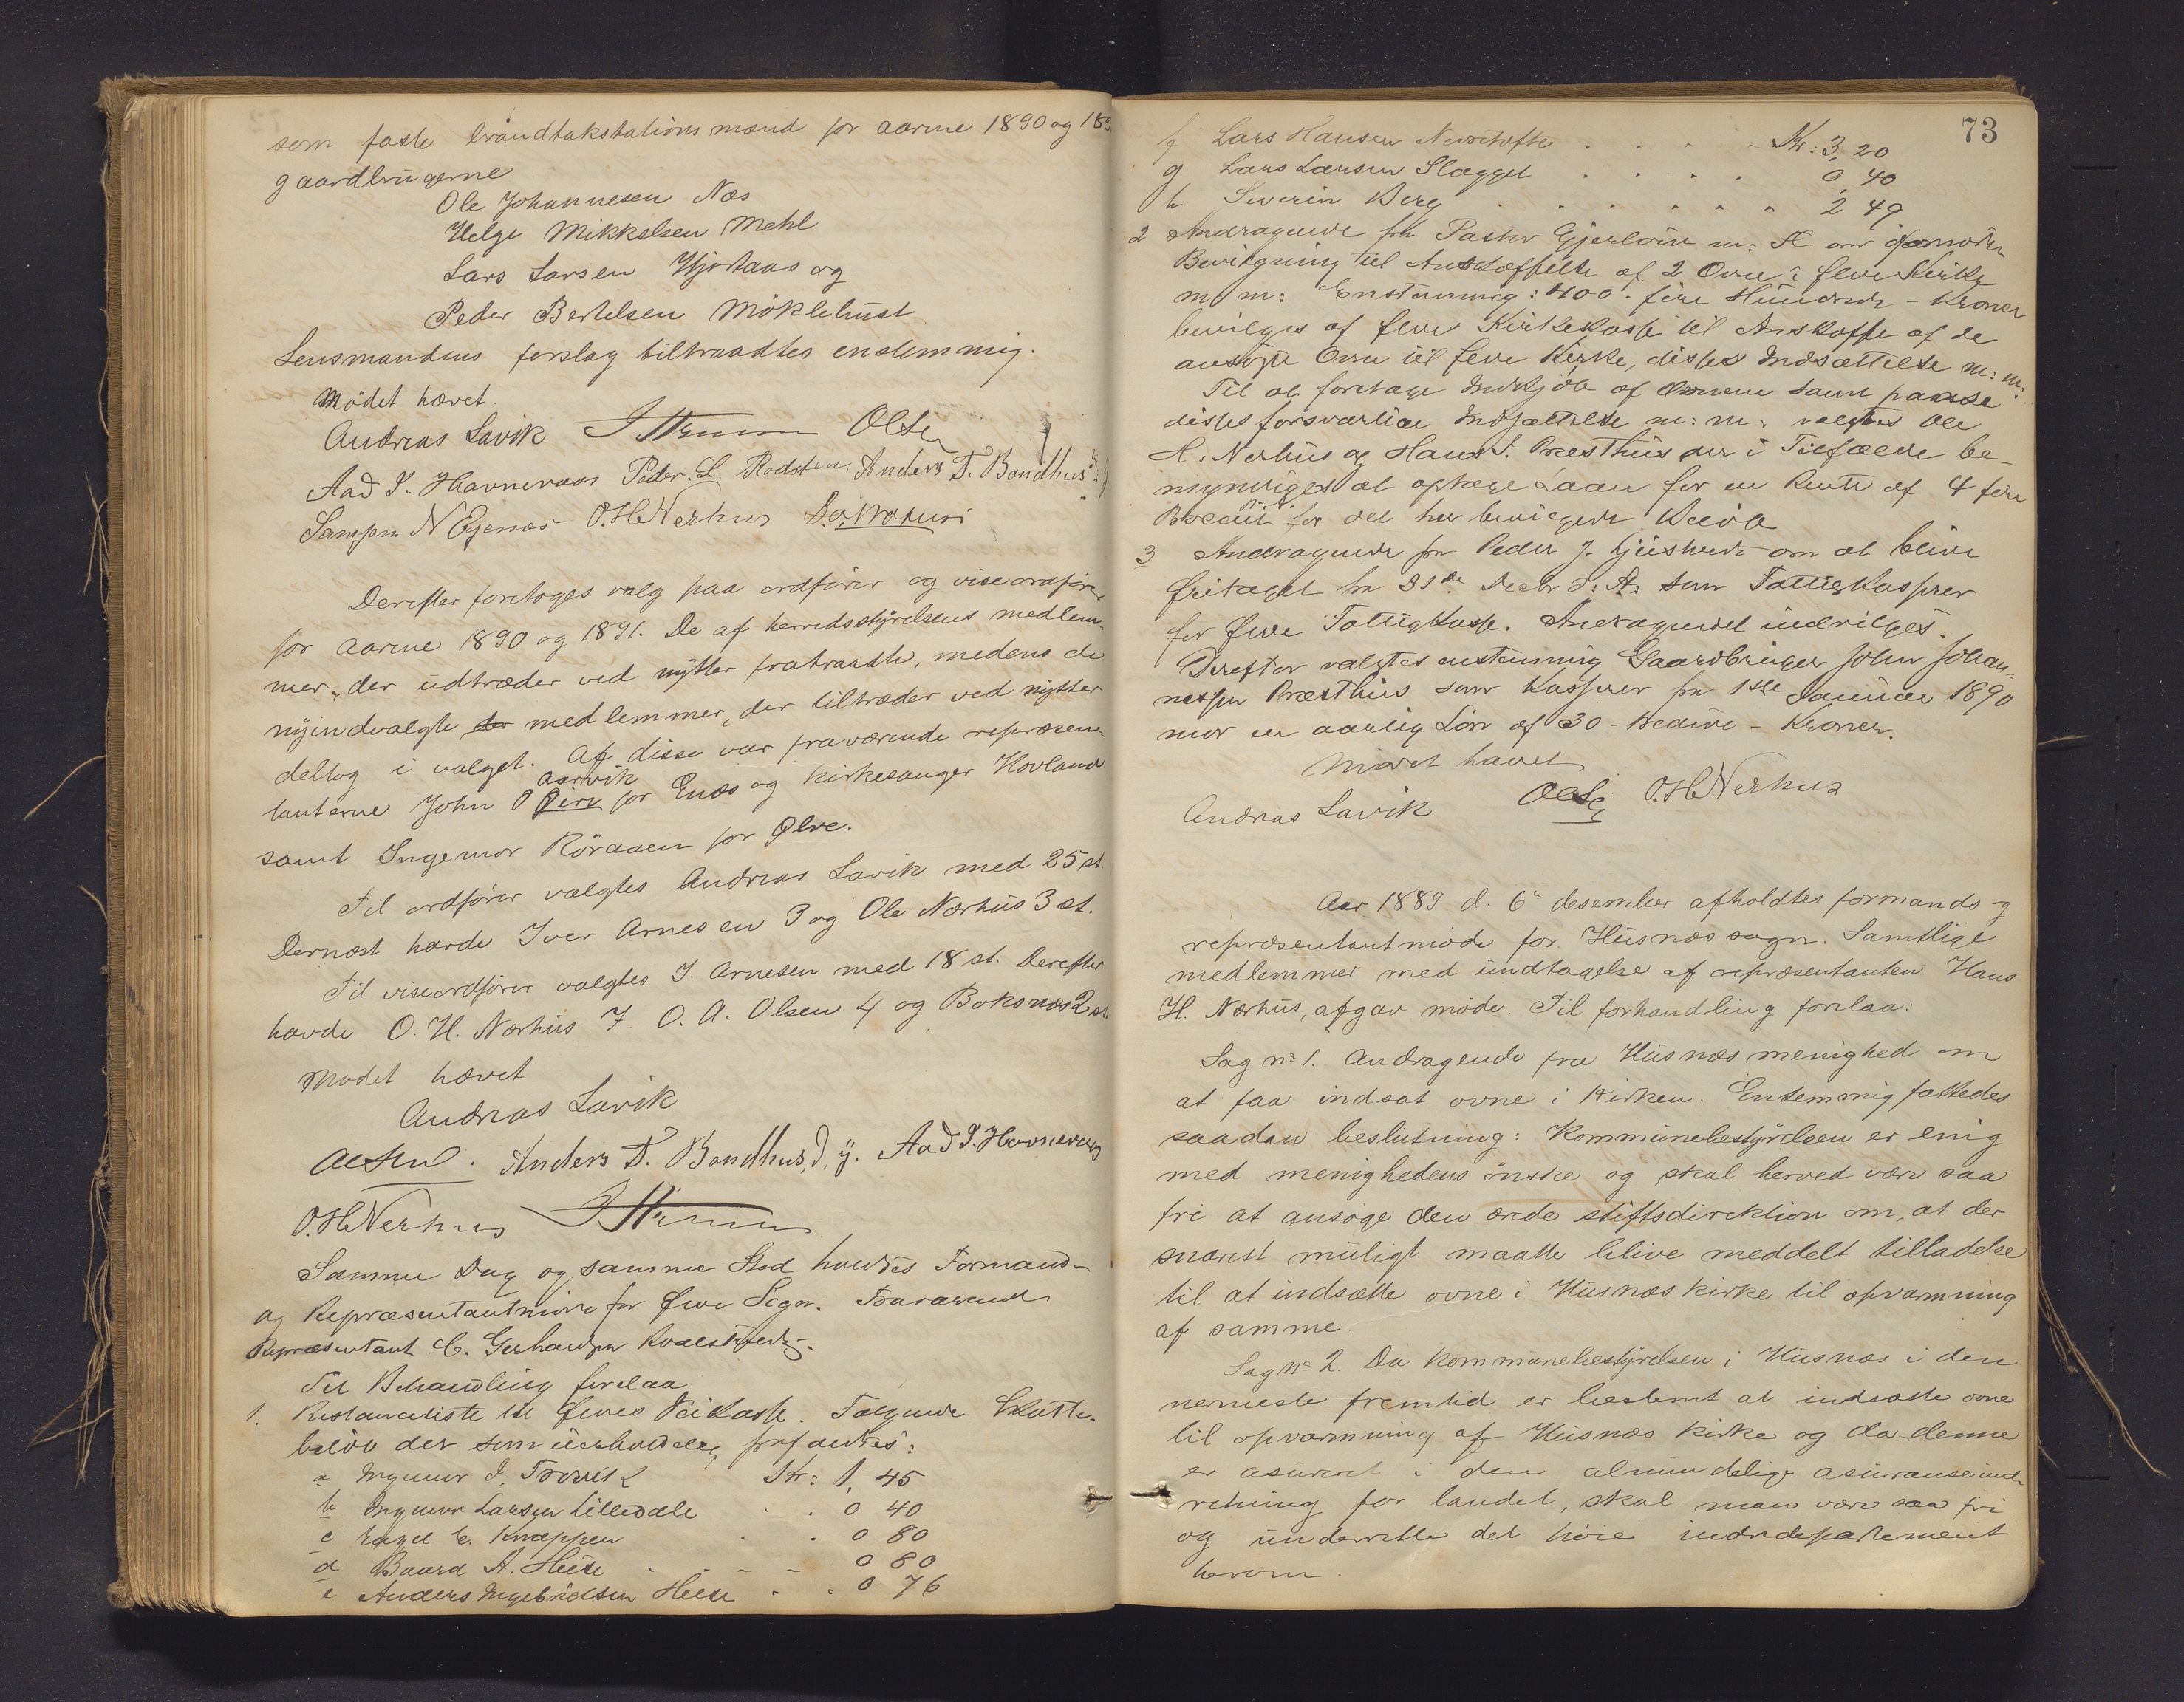 som faste brandtakstations mænd for aarene 1890 og 189
gaardbrugerne
Ole Johannesen Næs
Helge Mikkelsen Mehl
Lars Larsen Hjortaas og
Peder Bertelsen Möklebust
Lensmandens forslag tiltraadtes enstemmig.
Mödet hævet.
Andreas Lavik Olsen
Aad I. Havnevaas Peder. L. Rodsten. Anders T. Bondhus
Samson N Egenæs O. H Nerhus
Derefter foretoges valg paa ordförer og viseordförer
for aarene 1890 og 1891. De af herredsstyrelsens medlem-
mer, der udtræder ved nytter fratraadte, medens de
nyindvalgte medlemmer, der tiltræder ved nytter
deltog i valget. Af disse var fraværende repræsen-
Aarvik
tanterne John O for Enæs og kirkesanger Hovland
samt Ingemor Röraaen for Ølve.
Til ordförer valgtes Andreas Lavik med 25 st.
Dernæst havde Iver Arnesen 3 og Ole Nærhus 3 st.
Til viseordförer valgtes I. Arnesen med 18 st. Derefter
havde O. H. Nærhus 7. O. A. Olsen 4 og Boksnæs 2 st.
Mödet hævet
Andreas Lavik
Olsen. Anders T. Bondhus, d, y. Aad I. Havnevaas
O. H Nerhus
Samme Dag og samme Sted holdtes Formand-
og Repræsentantmöde for Ølve Sogn. Fraværende
Repræsentant C. Gerhardsen
Til Behandling forelaa
1. Restanceliste til Ølves Veikasse. Fölgende Skatte-
belöb der som uerholdelig frafaldtes:
a Ingmor I. Trovik Kr: 1,45
b Ingmor Larsen Lilledale . . 0 40
c Engel E. Knappen . . 0 80
d Baard A. Heie . . . 0 80
e Anders Ingebrigtsen Heie . . 0 76
73
f Lars Hansen . . . . Kr: 3,20
g Lars Larsen Slægget . . . . 0 40
h Severin Berg . . . . . . 2 49
2 Andragende fra Pastor Gjerlöw m: Fl om
Bevilgning til Anskaffelse af 2 Ovne i Ølve Kirke
m m: Enstemmig: 400. fire Hundrede - Kroner
bevilges af Ølve Kirkekasse til Anskaffe af de
ansögte Ovne til Ølve Kirke, disses Indsættelse m: m:
Til at foretage Indkjöb af Ovnene samt paase
disses forsvarlige Indsættelse m: m: valgtes Ole
H. Nerhus og Hans J. Præsthus der i Tilfælde be-
myndiges at optage Laan for en Rente af 4 fire
Procent for det her bevilgede Belöb
3 Andragende fra Peder J. om at blive
fritaget fra 31de Decbr d: A: som Fattigkasserer
for Ølve Fattigkasse. Andragendet indvilges.
Derefter valgtes enstemmig Gaardbruger John Johan-
nessen Præsthus som Kasserer fra 1ste Januar 1890
mod en aarlig Lön af 30 - tredive - Kroner.
Mödet hævet
Andreas Lavik Olsen O. H Nerhus
Aar 1889 d. 6te desember afholdtes formands- og
repræsentantmöde for Husnæs sogn. Samtlige
medlemmer med undtagelse af repræsentanten Hans
H. Nærhus, afgav möde. Til forhandling forelaa:
Sag no 1. Andragende fra Husnæs menighed om
at faa indsat ovne i kirken. Enstemmig fattedes
saadan beslutning: Kommunebestyrelsen er enig
med menighedens önske og skal herved være saa
fri at ansöge den ærede stiftsdirektion om, at der
snarest muligt maatte blive meddelt tilladelse
til at indsætte ovne i Husnæs kirke til opvarmning
af samme.
Sag no 2. Da kommunebestyrelsen i Husnæs i den
nermeste fremtid er bestemt at indsætte ovne
til opvarmning af Husnæs kirke og da denne
er asureret i den almindelige asuranseind-
retning for landet, skal man være saa fri
og underrette det höie indredepartement
herom.